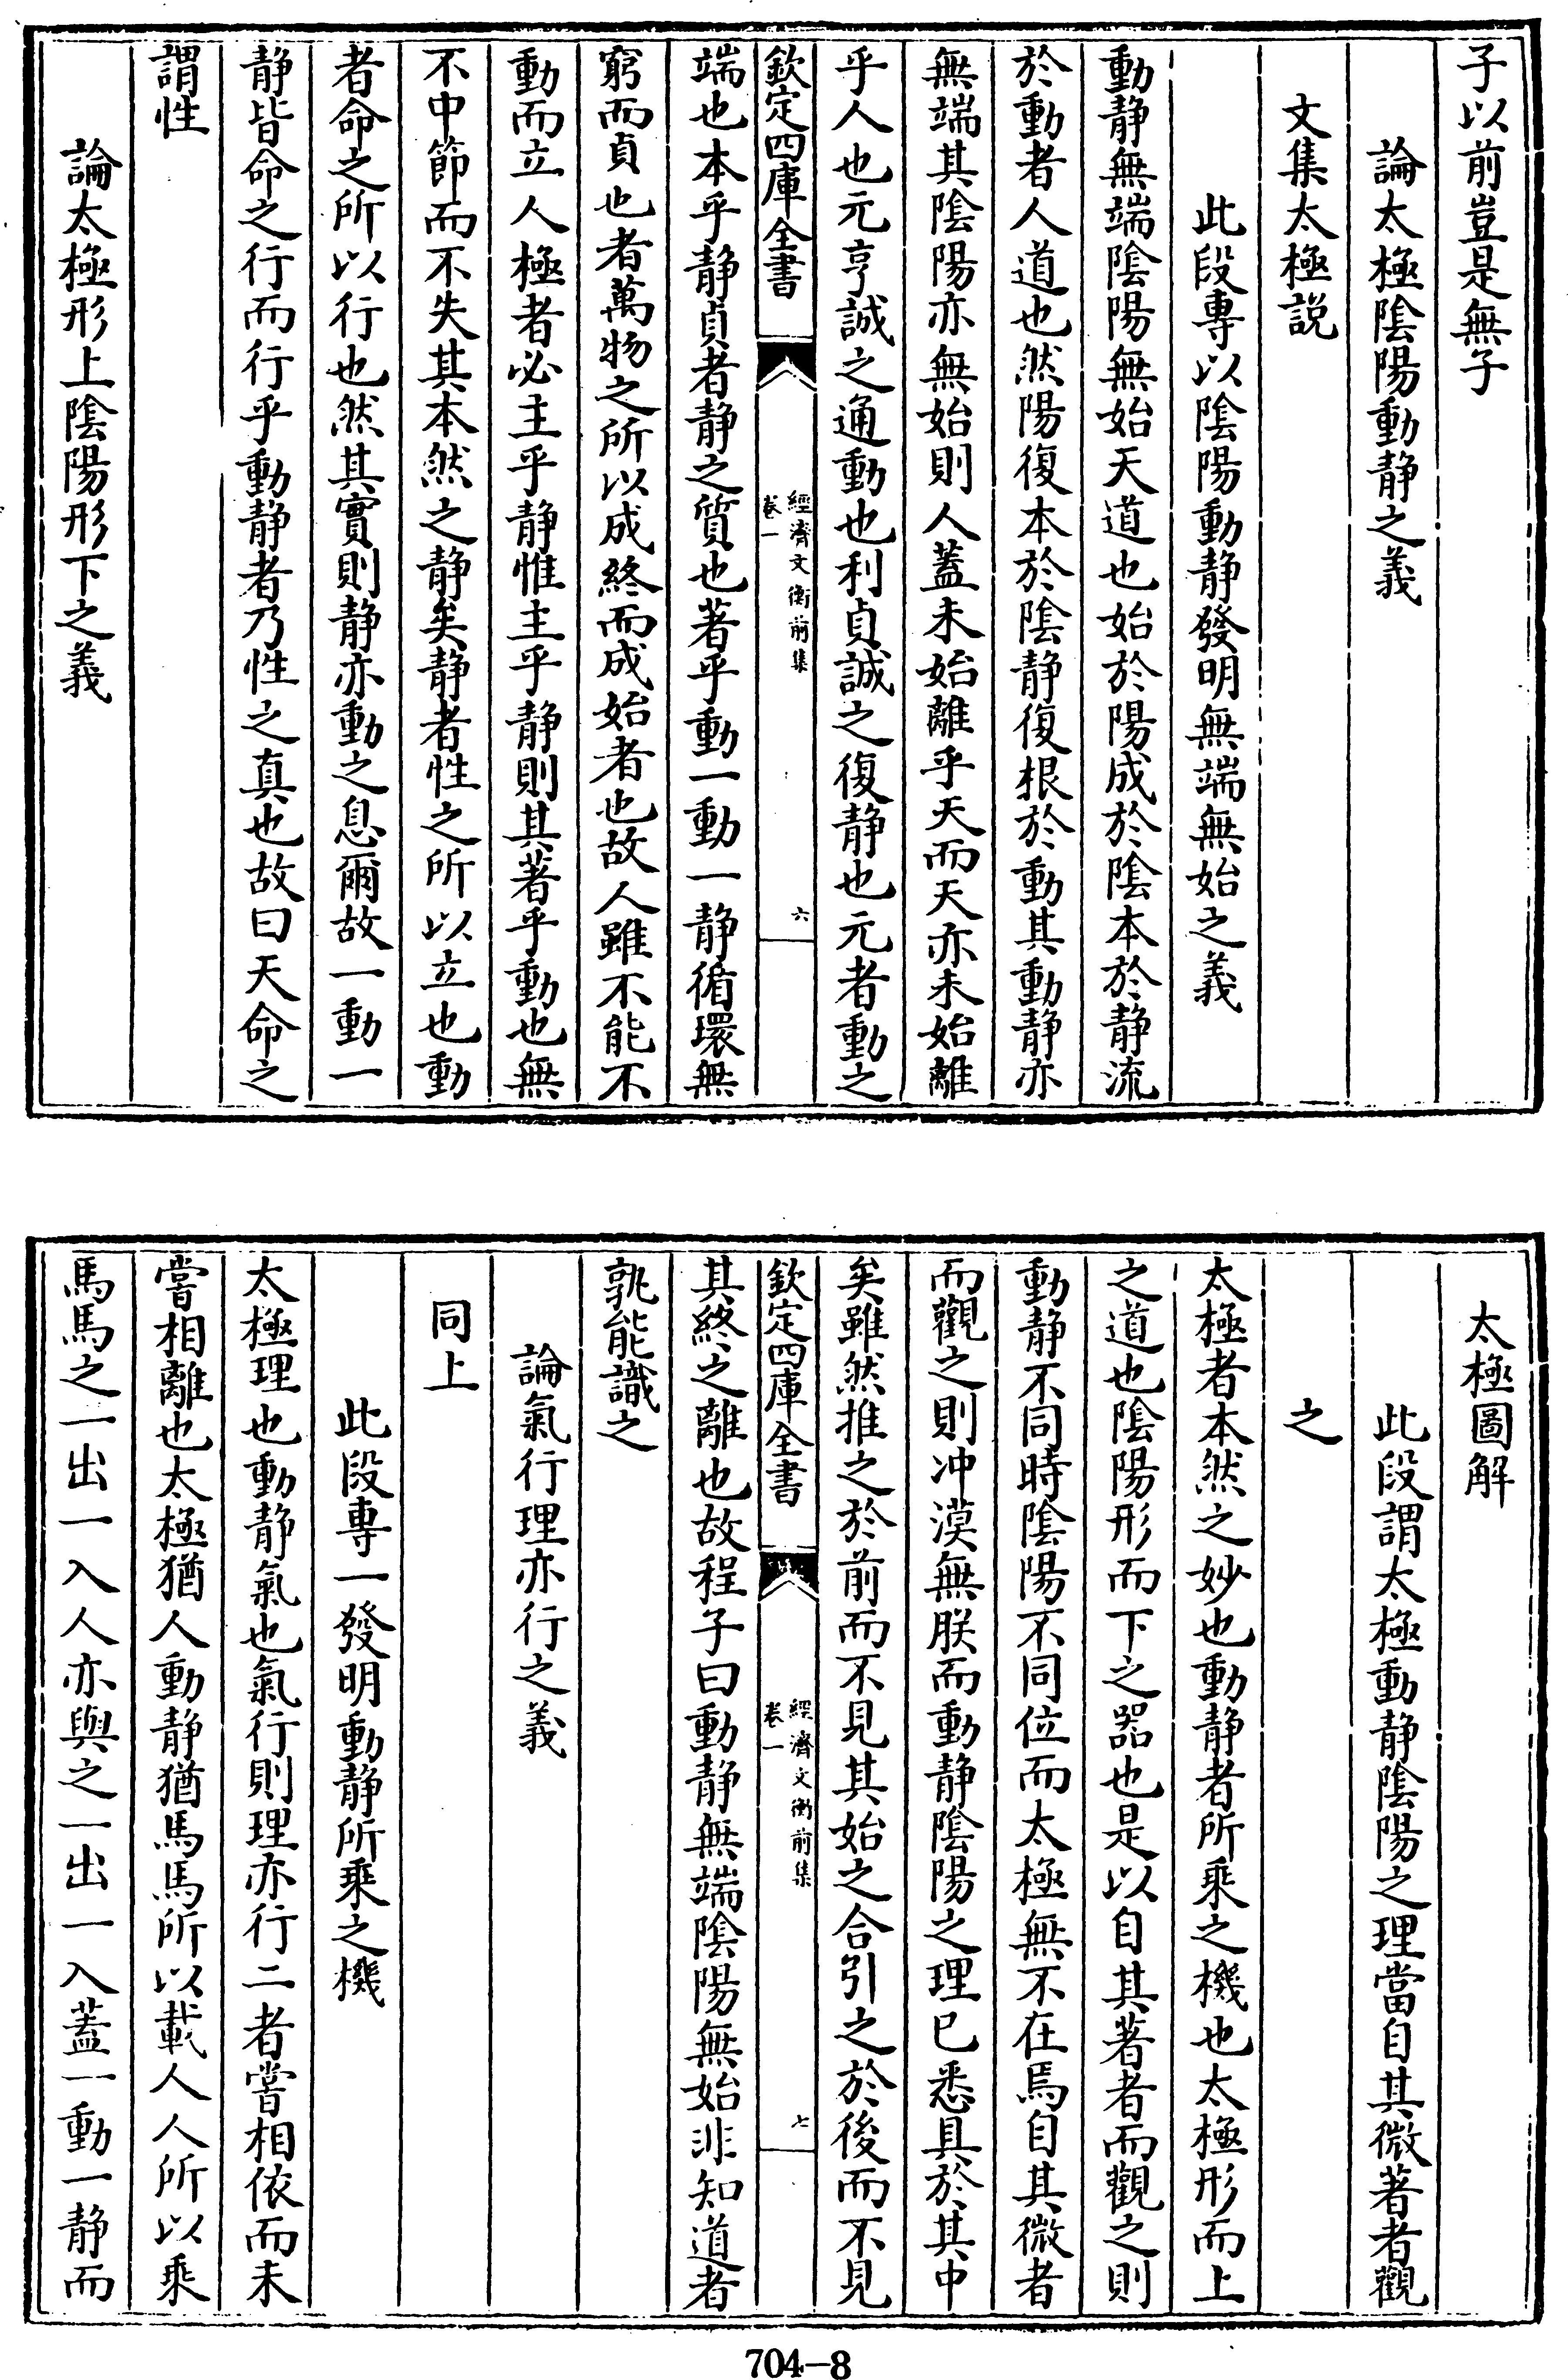 子以前豈是無子
論太極陰陽動静之義
文集太極説
此段專以陰陽動静發明無端無始之義
動静無端陰陽無始天道也始於陽成於陰本於静流
於動者人道也然陽復本於陰静復根於動其動静亦
無端其陰陽亦無始則人蓋未始離乎天而天亦未始離
乎人也元亨誠之通動也利貞誠之復静也元者動之
欽定四庫全書
經濟文衡前集
卷一
六
端也本乎静貞者静之質也著乎動一動一静循環無
窮而貞也者萬物之所以成終而成始者也故人雖不能不
動而立人極者必主乎静惟主乎静則其著乎動也無
不中節而不失其本然之静矣静者性之所以立也動
者命之所以行也然其實則静亦動之息爾故一動一
静皆命之行而行乎動静者乃性之真也故曰天命之
謂性
論太極形上陰陽形下之義
太極圖解
此段謂太極動静陰陽之理當自其微著者觀
之
太極者本然之妙也動静者所乘之機也太極形而上
之道也陰陽形而下之器也是以自其著者而觀之則
動静不同時陰陽不同位而太極無不在焉自其微者
而觀之則冲漠無朕而動静陰陽之理已悉具於其中
矣雖然推之於前而不見其始之合引之於後而不見
欽定四庫全書
經濟文衡前集
卷一
七
其終之離也故程子曰動静無端陰陽無始非知道者
孰能識之
論氣行理亦行之義
同上
此段專一發明動静所乘之機
太極理也動静氣也氣行則理亦行二者嘗相依而未
嘗相離也太極猶人動静猶馬馬所以載人人所以乘
馬馬之一出一入人亦與之一出一入蓋一動一静而
704-8